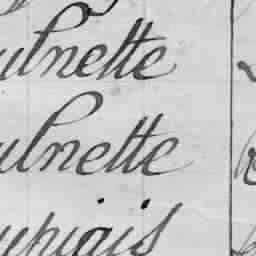 ulnette
ulnette
upiais